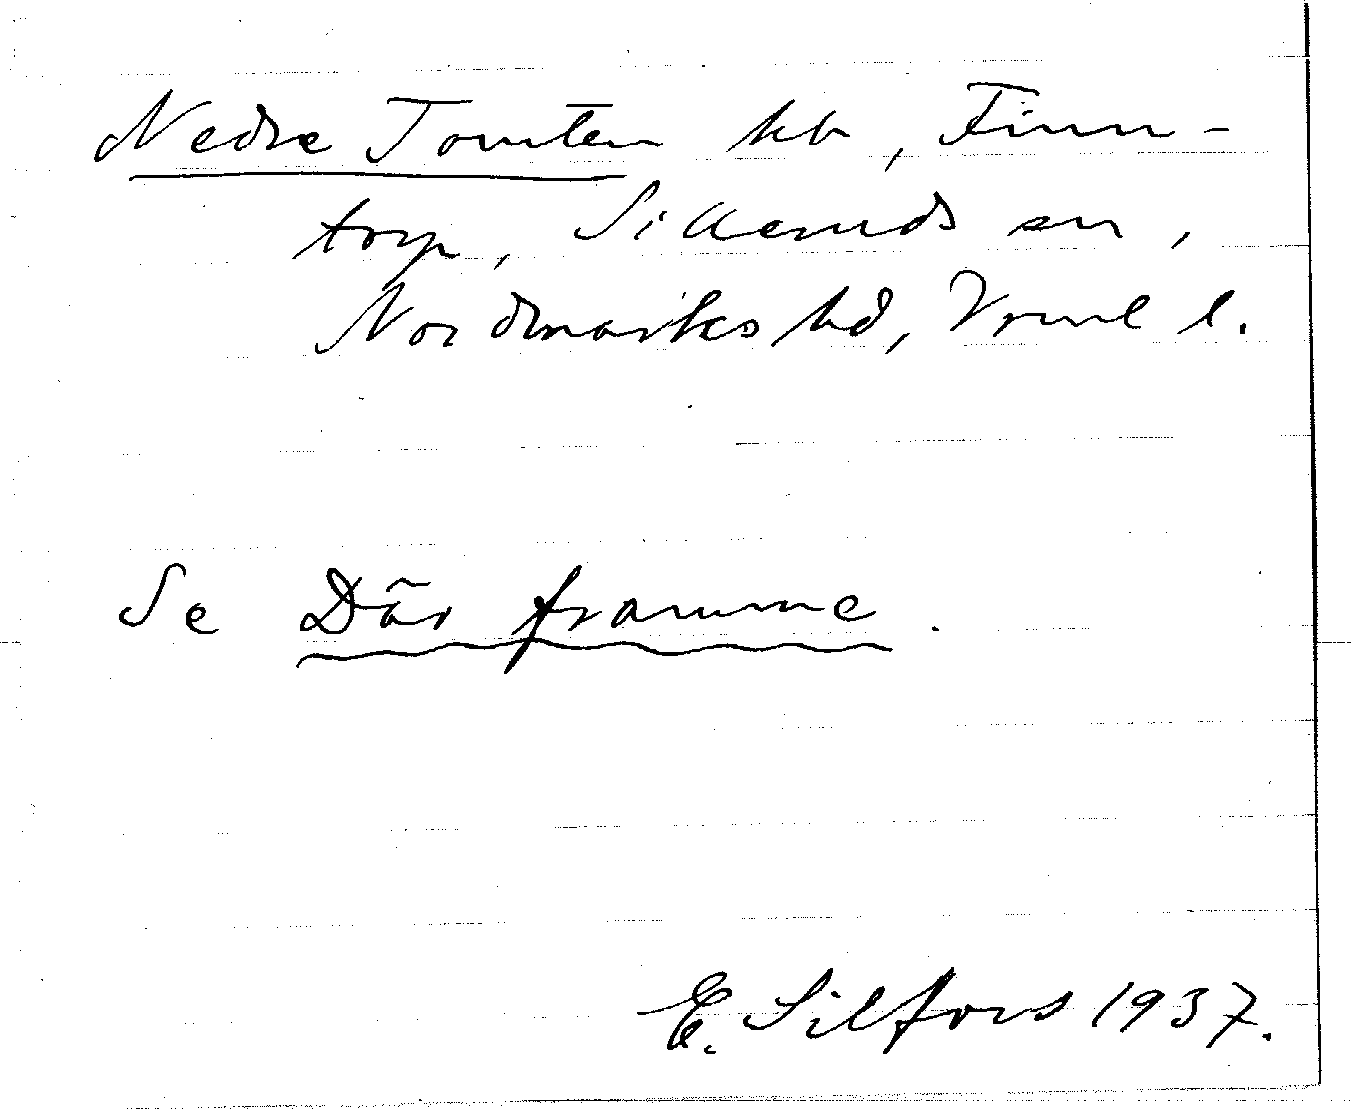 Nedre Tomten hb, Finn-
torp, Silleruds sn,
Nordmarks hd, Vrml l.
Se Där framme.
E. Silfors 1937.